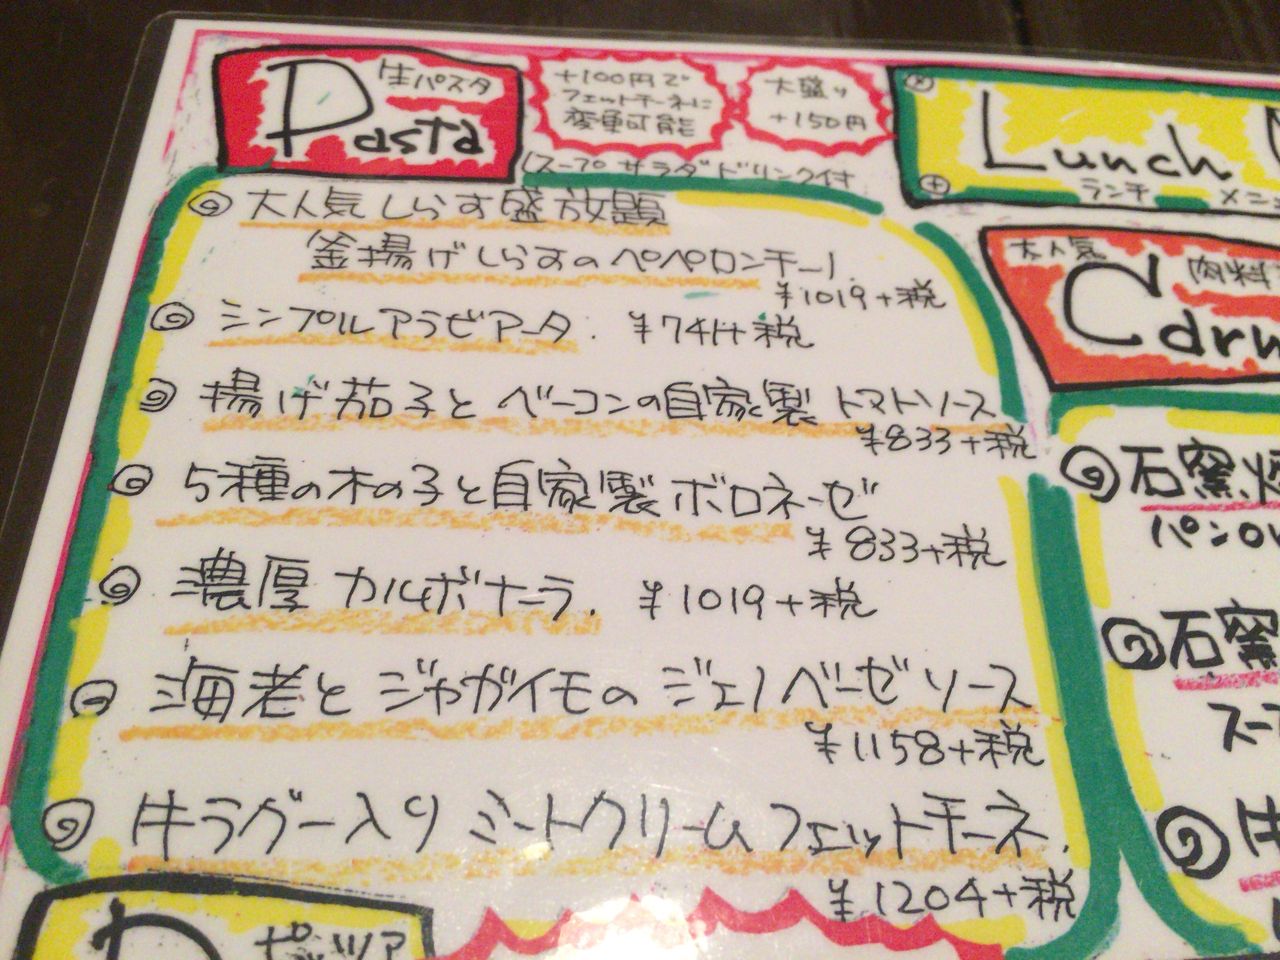 生パスタ
Pasta
+100円で
フェットチーネに
変更可能
大盛り
+150円
(スープ サラダ ドリンク付
大人気しらす盛放題
釜揚げしらすのペペロンチーノ.
¥1019+税
シンプルアラビアータ. ¥741+税
揚げ茄子とベーコンの自家製トマトソース
¥833+税
5種の木の子と自家製ボロネーゼ
¥833+税
濃厚カルボナーラ. ¥1019+税
海老とジャガイモのジェノベーゼソース
¥1158+税
牛ラグー入りミートクリームフェットチーネ.
¥1204+税
ピッツァ
Lunch
ランチ メニュ
大人気 肉料
Carn
石窯
パンor
石窯
スープ
牛